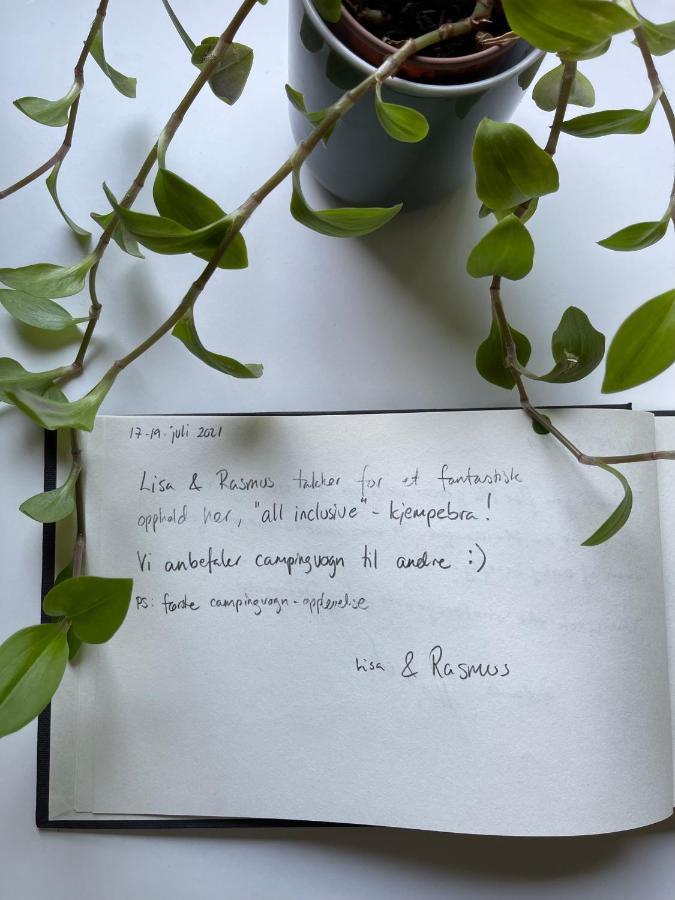 17-19. juli 2021
Lisa & Rasmus takker for et fantastisk
opphold her, "all inclusive" - kjempebra!
Vi anbefaler campingvogn til andre :)
PS: første campingvogn-opplevelse
Lisa & Rasmus